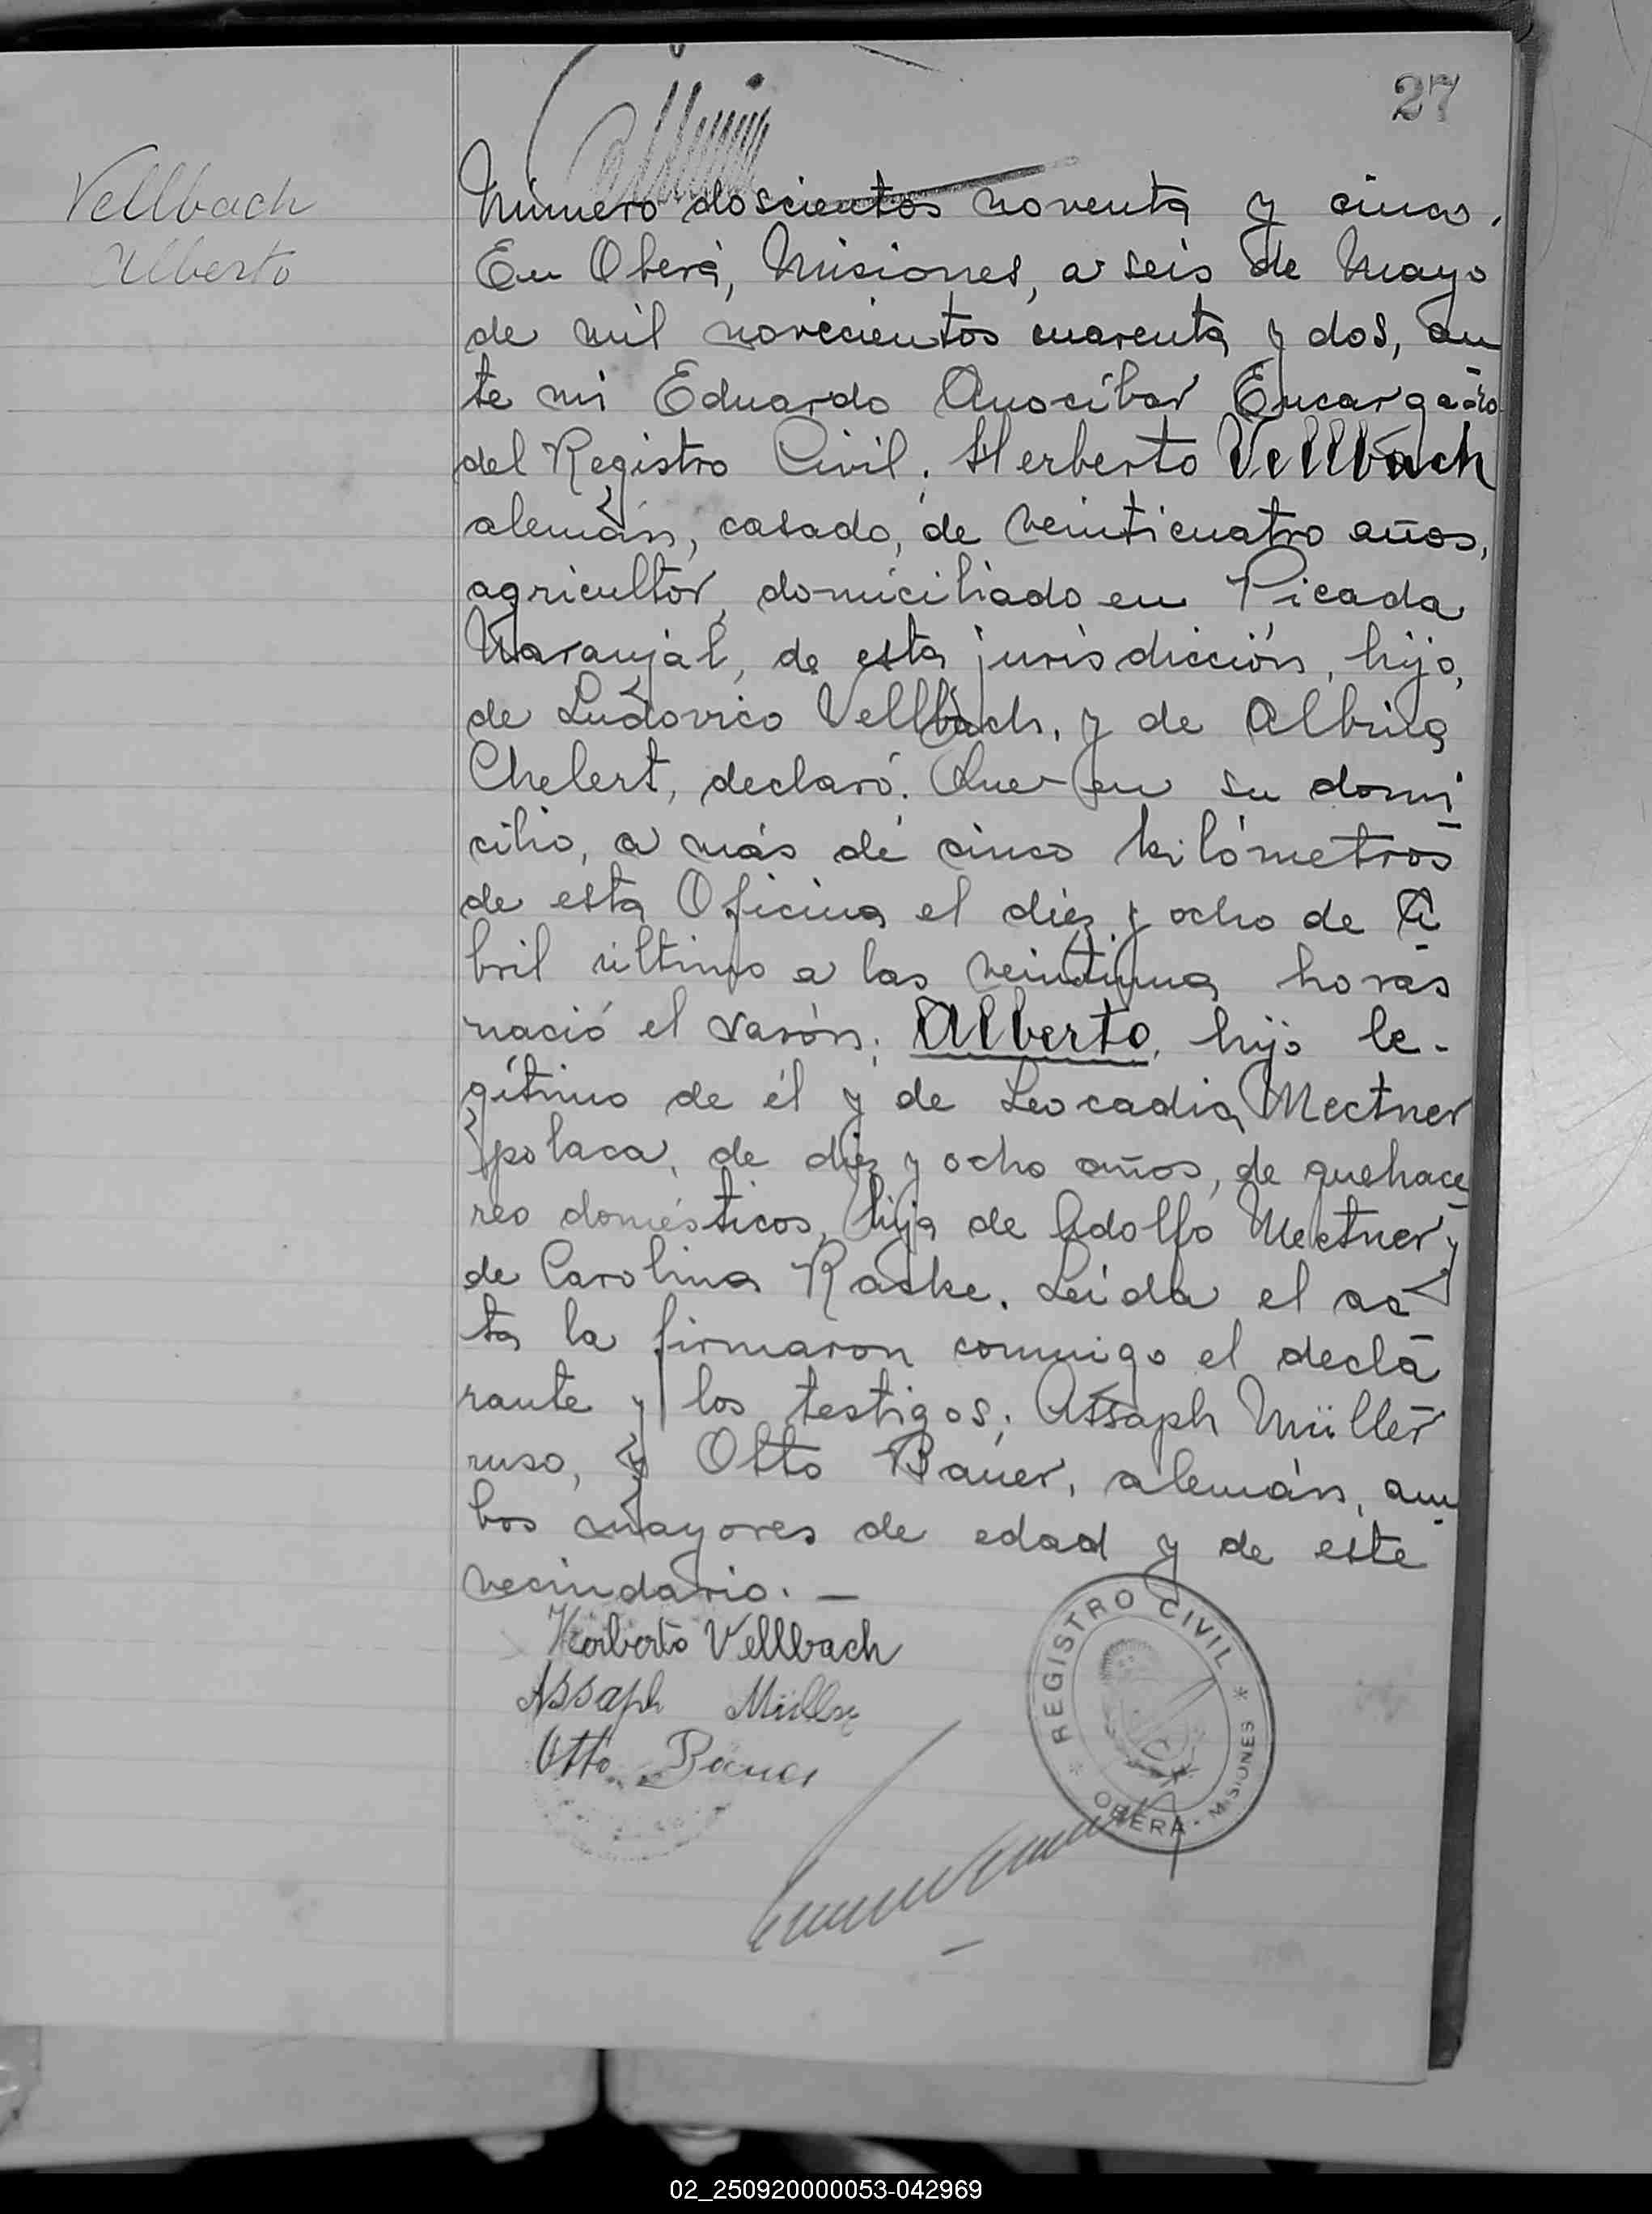 27
Vellbach
Alberto
Número doscientos noventa y cinco.
En Oberá, Misiones, a seis de Mayo
de mil novecientos cuarenta y dos, an
te mi Eduardo Anocíbar Encargado
del Registro Civil. Herberto Vellbach
alemán, casado, de veinticuatro años,
agricultor, domiciliado en Picada
Naranjál, de esta jurisdicción, hijo,
de Ludovico Vellbach, y de Albina
Chelert, declaró: Que en su domi
cilio, a más de cinco kilómetros
de esta Oficina el diez y ocho de A
bril último a las veintiuna horas
nació el varón: Alberto, hijo le-
gítimo de él y de Leocadia Mectner
polaca, de diez y ocho años, de quehace
res domésticos, hija de Adolfo Mectner y
de Carolina Raske. Leída el ac
ta la firmaron conmigo el decla
rante y los testigos: Assaph Müller
ruso, y Otto Bauer, alemán, am
bos mayores de edad y de este
vecindario. —
Herberto Vellbach
Assaph Müller
Otto Bauer
REGISTRO CIVIL
* OBERÁ - MISIONES *
02_250920000053-042969